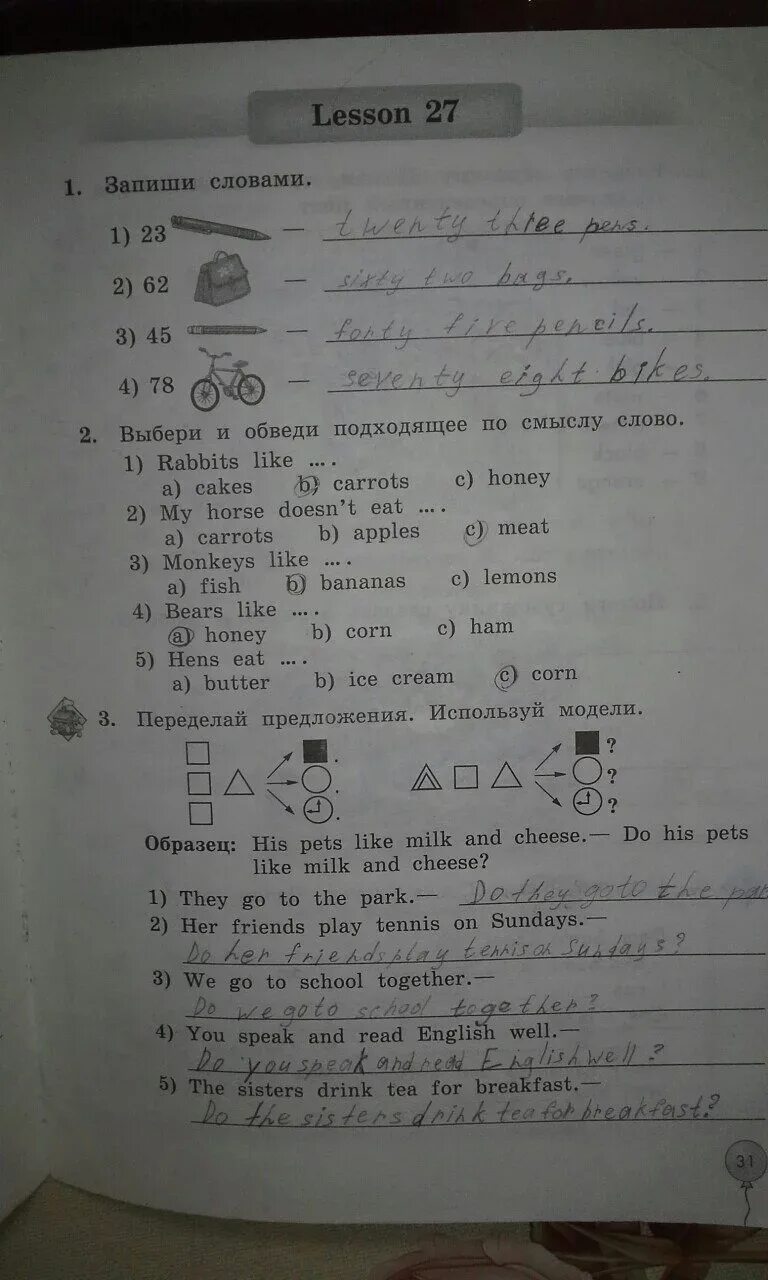 Lesson 27
1. Запиши словами.
1) 23 — twenty three pens.
2) 62 — sixty two bags.
3) 45 — fonty five pencils.
4) 78 — seventy eight bikes.
2. Выбери и обведи подходящее по смыслу слово.
1) Rabbits like ... .
a) cakes b) carrots c) honey
2) My horse doesn't eat ... .
a) carrots b) apples c) meat
3) Monkeys like ... .
a) fish b) bananas c) lemons
4) Bears like ... .
a) honey b) corn c) ham
5) Hens eat ... .
a) butter b) ice cream c) corn
3. Переделай предложения. Используй модели.
. ?
. ?
. ?
Образец: His pets like milk and cheese.— Do his pets
like milk and cheese?
1) They go to the park.— Do they go to the par
2) Her friends play tennis on Sundays.—
Do her friends play tennis on Sundays?
3) We go to school together.—
Do we go to school together?
4) You speak and read English well.—
Do you speak and read English well?
5) The sisters drink tea for breakfast.—
Do the sisters drink tea for breakfast?
31